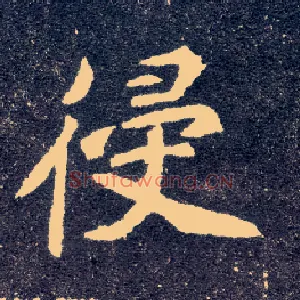 侵
Shufawang.CN